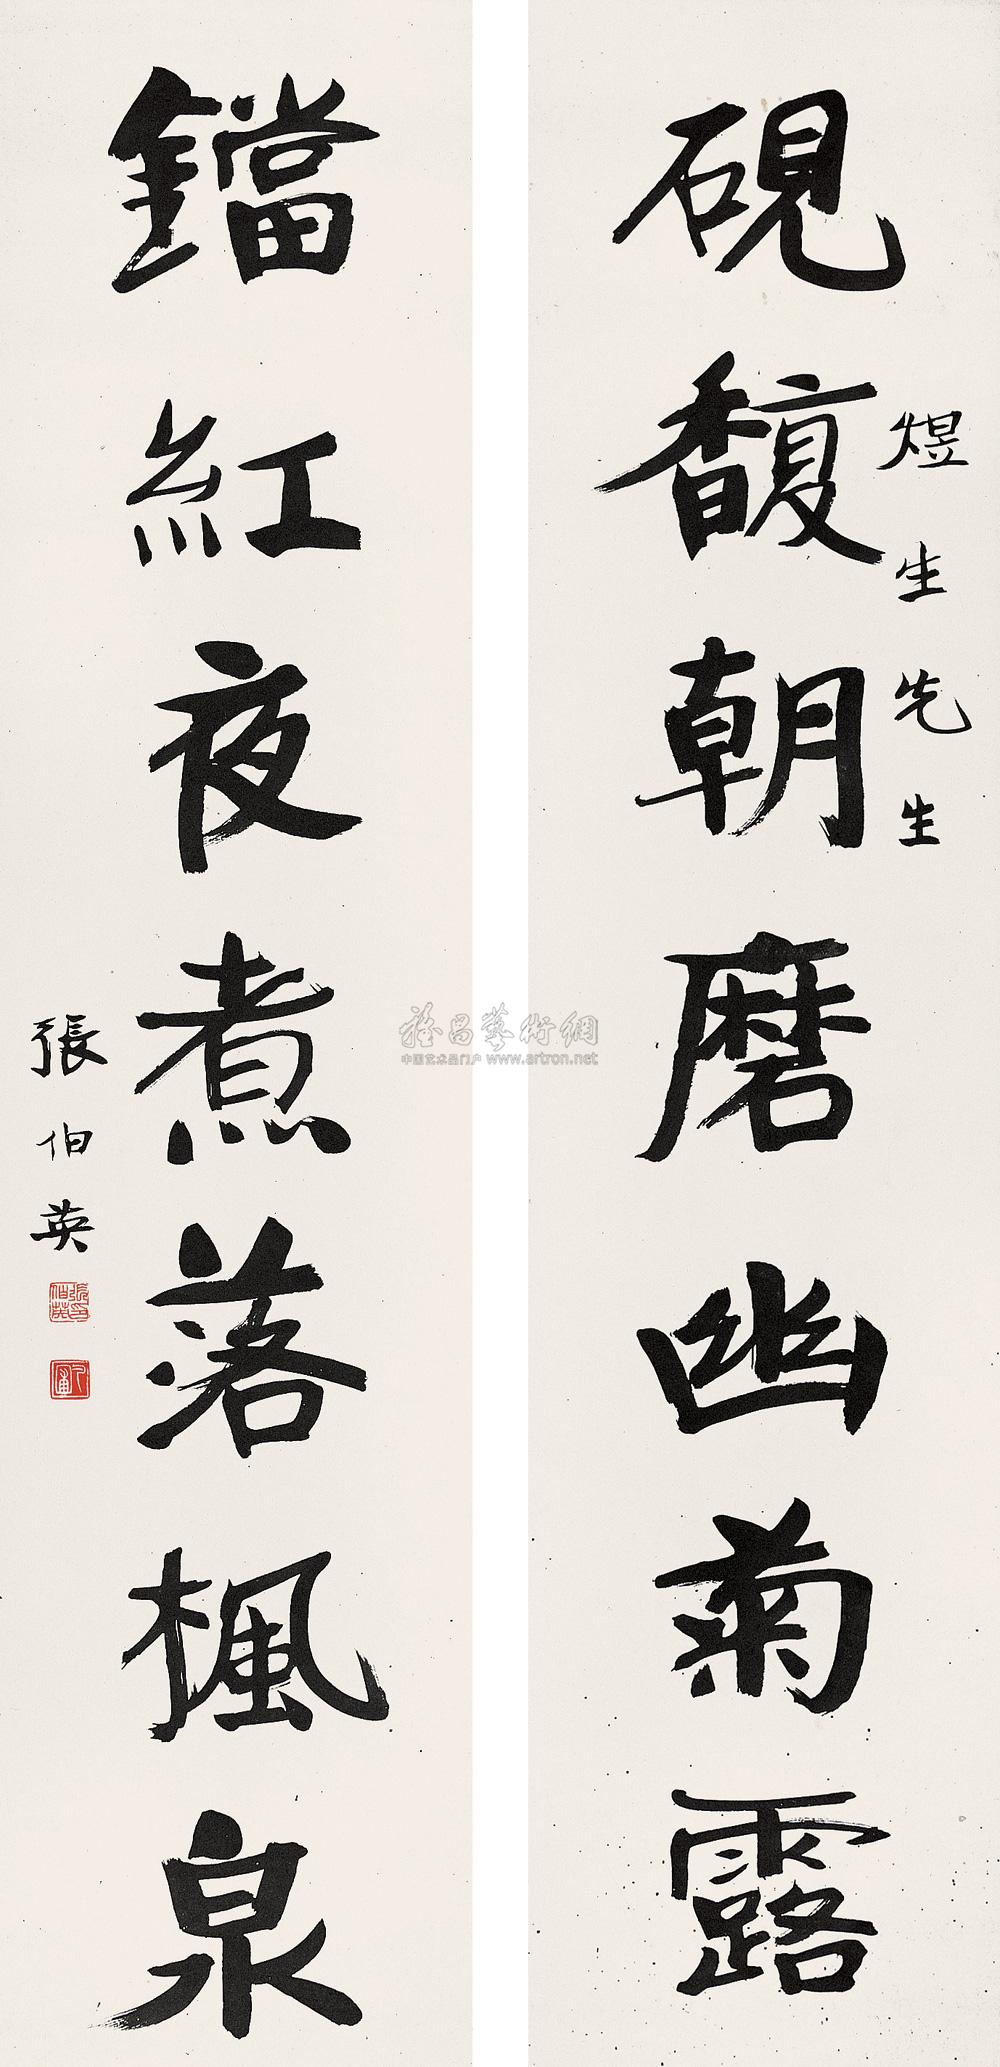 煜生先生
硯馥朝磨幽菊露
鐺紅夜煮落楓泉
張伯英
雅昌藝術網
中国艺术品门户 www.artron.net